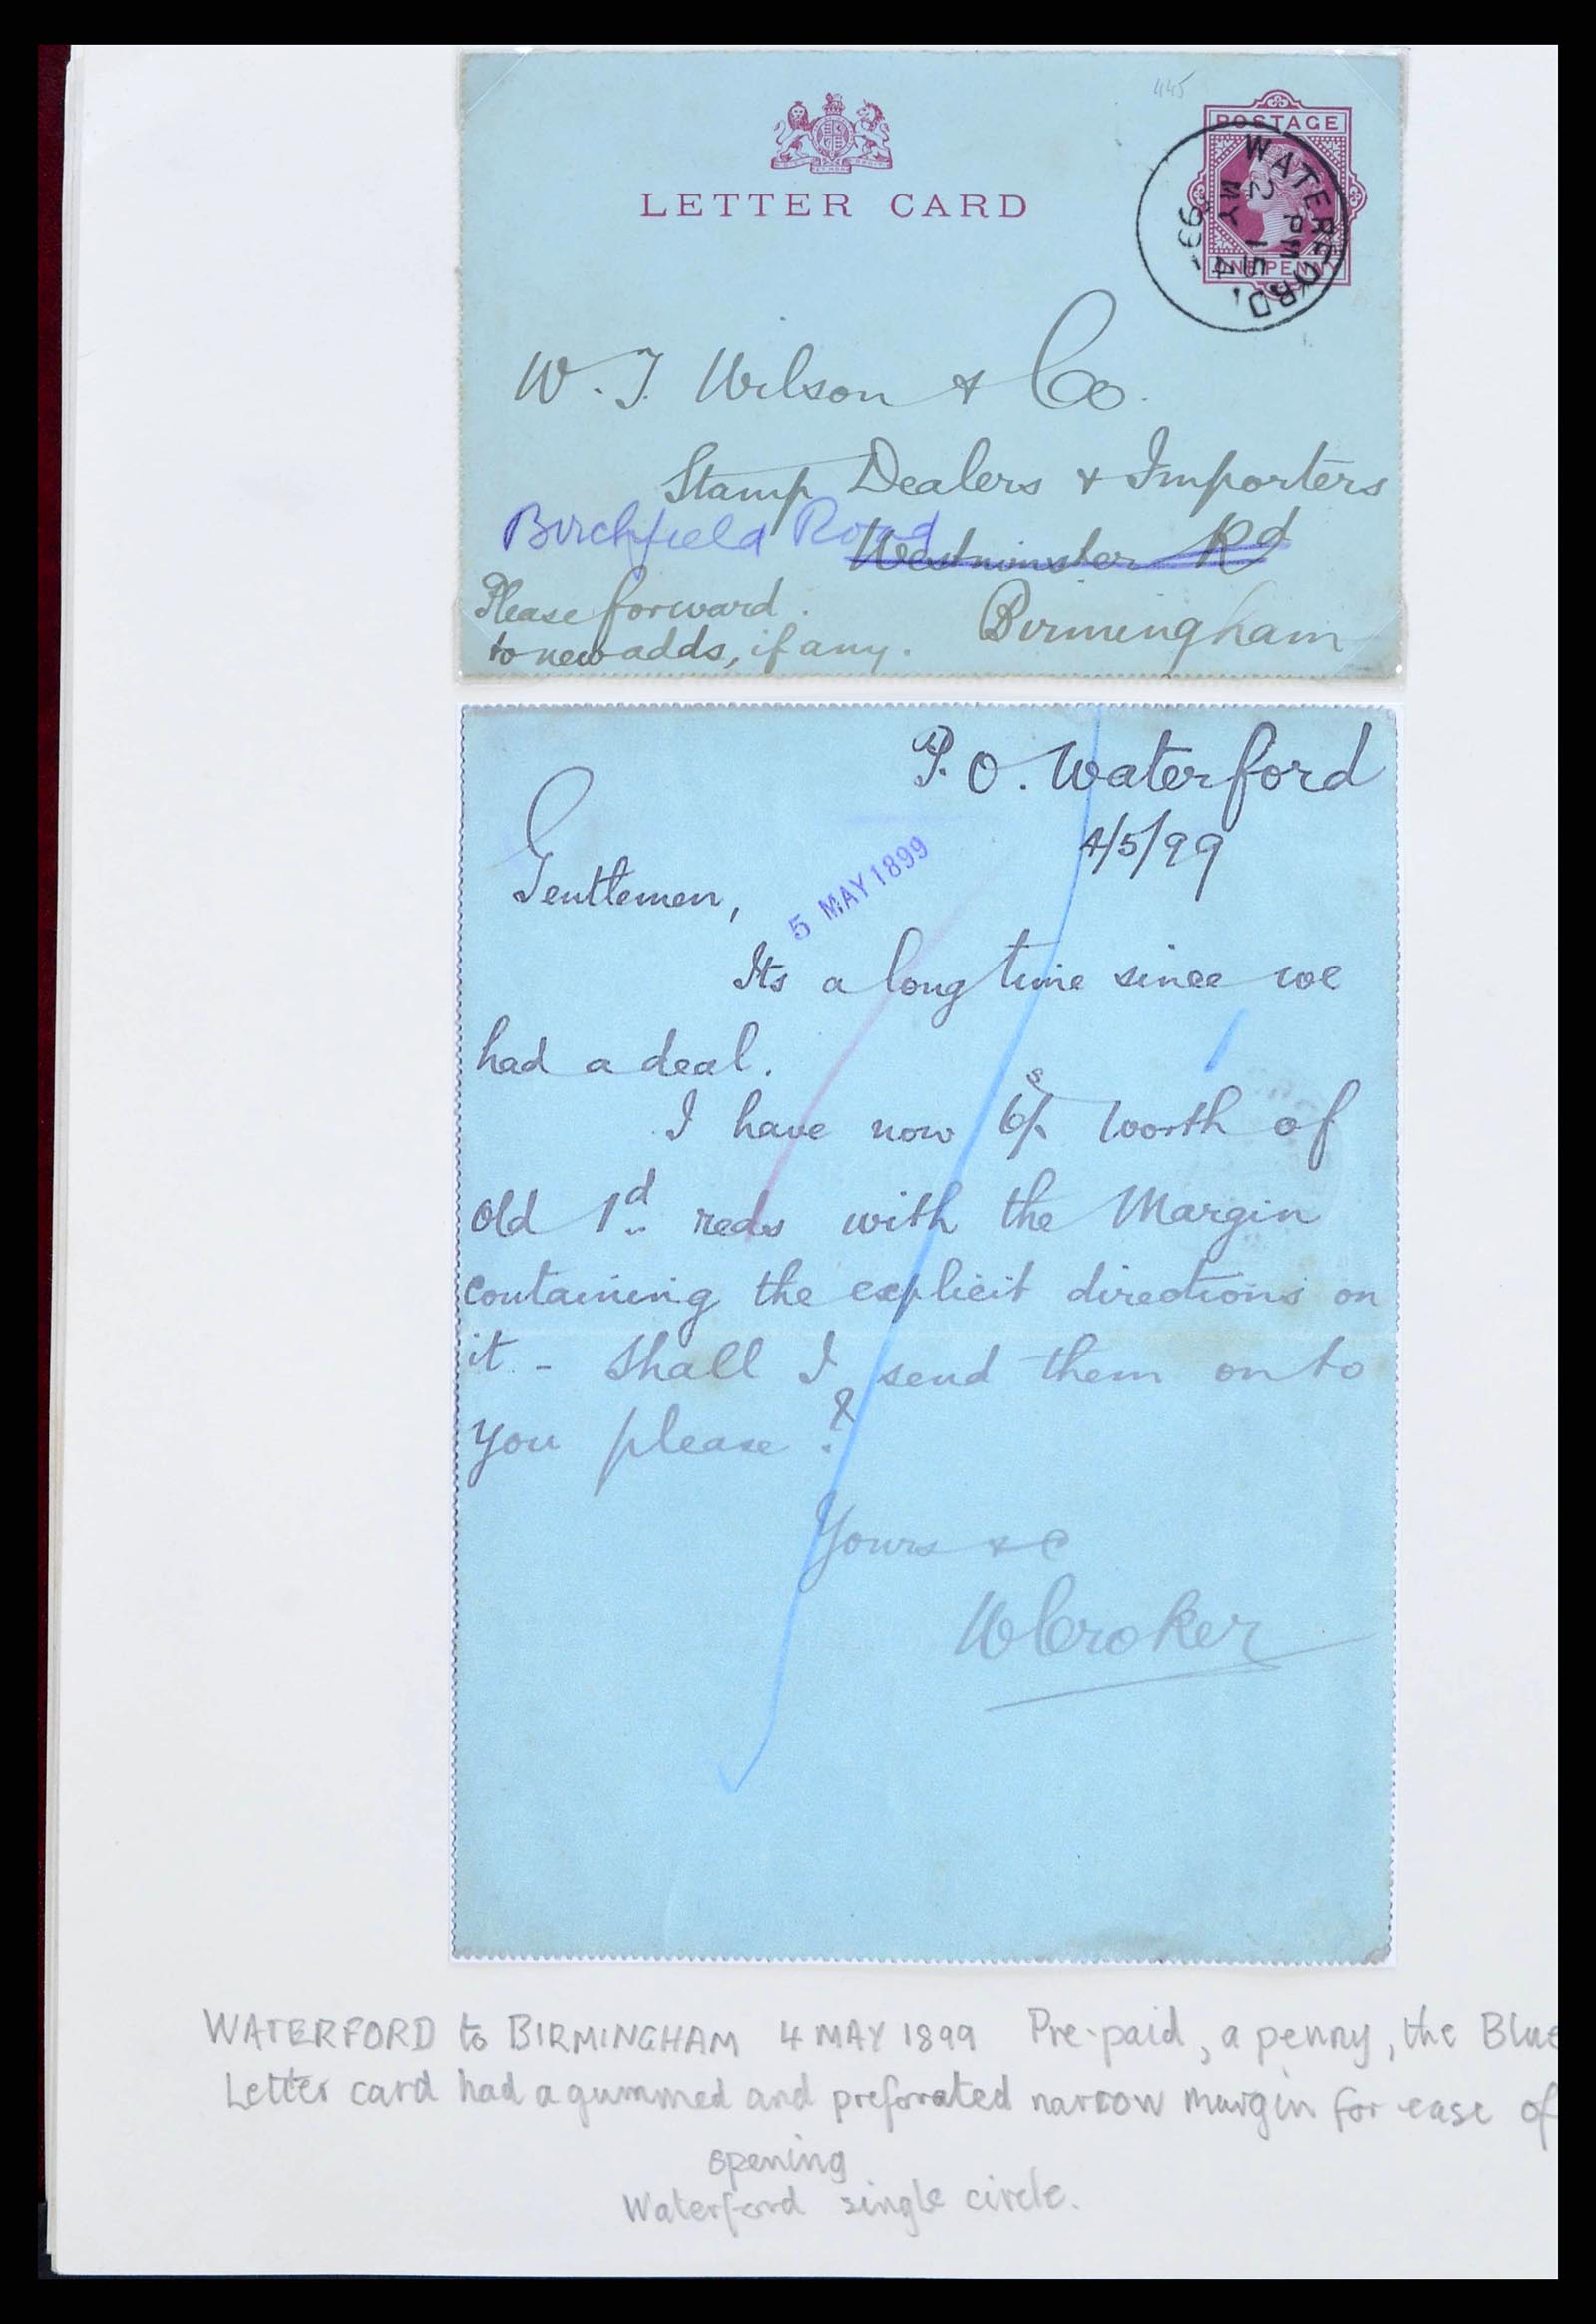 445
LETTER CARD
POSTAGE
ONE PENNY
WATERFORD
2 PM
MY 4
99
W. J. Wilson & Co.
Stamp Dealers & Importers
Birchfield Road
Westminster Rd
Please forward.
to new adds, if any.
Birmingham
P. O. Waterford
4/5/99
5 MAY 1899
Gentlemen,
Its a long time since we
had a deal.
I have now 6/s worth of
old 1d reds with the Margin
containing the explicit directions on
it - Shall I send them on to
you please ?
Yours &c
W Croker
WATERFORD to BIRMINGHAM 4 MAY 1899 Pre-paid, a penny, the Blue
Letter card had a gummed and preforated narrow margin for ease of
opening
Waterford single circle.